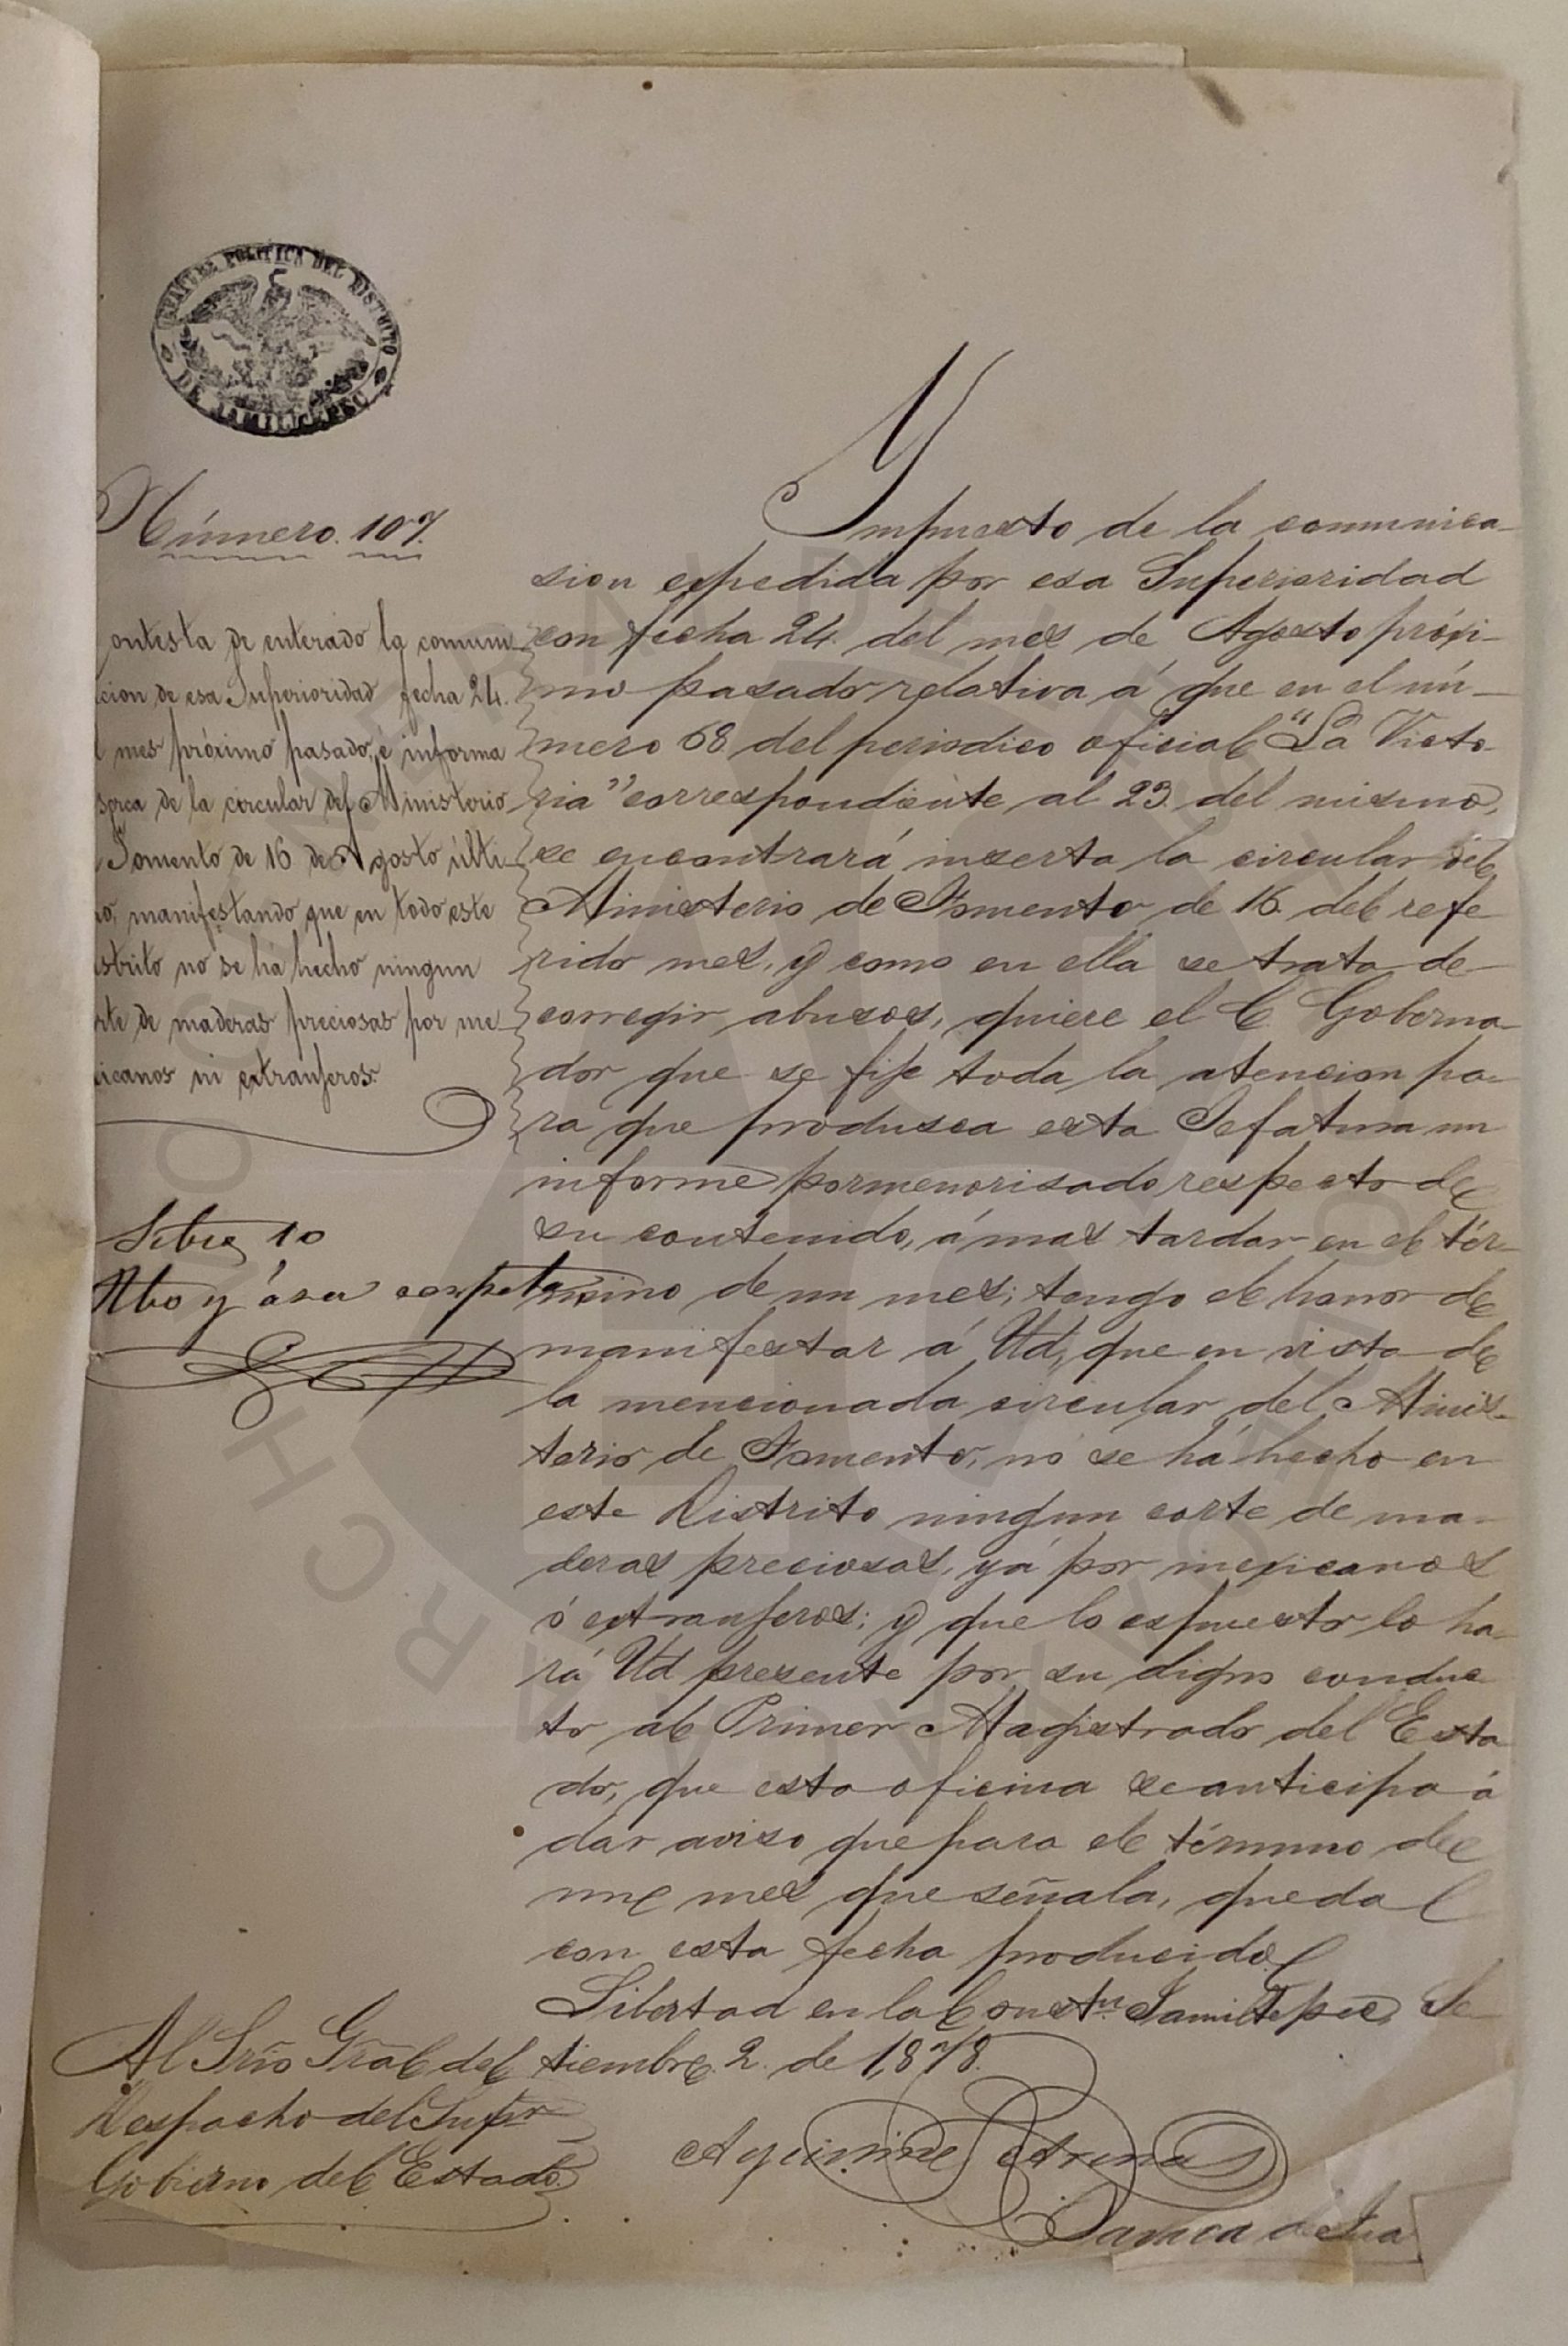 JEFATURA POLITICA DEL DISTRITO
DE JAMILTEPEC
Número. 107.
ontesta de enterado la comuni-
cion de esa Superioridad fecha 24.
l mes próximo pasado, é informa
serca de la circular del Ministerio
Fomento de 16 de Agosto últi-
mo, manifestando que en todo este
istrito no se ha hecho ningun
rte de maderas preciosas por me-
icanos ni extranjeros.
Setbre 10
Rbo y á su
Impuesto de la comunica-
sion expedida por esa Superioridad
con fecha 24. del mes de Agosto próxi-
mo pasado relativa á que en el nú-
mero 68 del periodico oficial "La Victo-
ria" correspondiente al 23. del mismo,
se encontrará inserta la circular del
Ministerio de Fomento de 16. del refe-
rido mes, y como en ella se trata de
corregir abusos, quiere el C. Goberna-
dor que se fije toda la atencion pa-
ra que produsca esta Jefatura un
informe pormenorisado respecto de
su contenido, á mas tardar en el tér-
mino de un mes; tengo el honor de
manifestar á Ud, que en vista de
la mencionada circular del Minis-
terio de Fomento, no se há hecho en
este Distrito ningun corte de ma-
deras preciosas, yá por mexicanos
ó extranjeros; y que lo espuesto lo ha-
rá Ud presente por su digno conduc-
to al Primer Magistrado del Esta-
do, que esta oficina se anticipa á
dar aviso que para el término de
un mes que señala, queda
con esta fecha producido
Libertad en la Constn. Jamiltepec, Se-
tiembre 2. de 1,878.
Al Srio Gral del
Despacho del Supr
Gobierno del Estado.